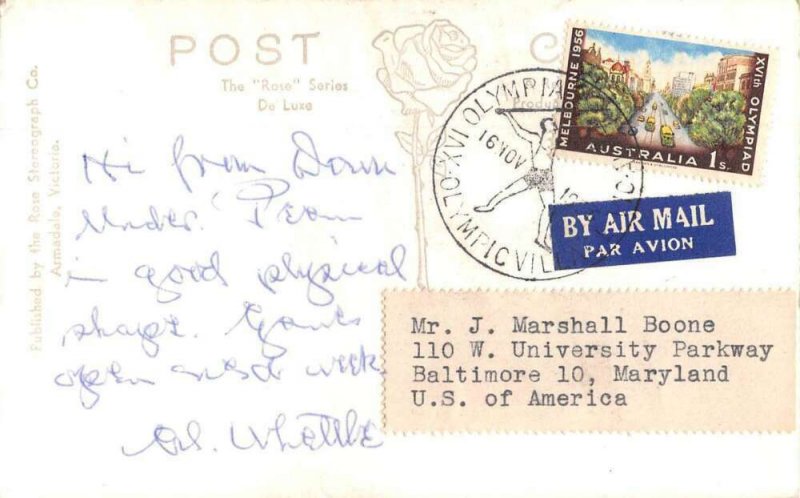 POST
The "Rose" Series
De Luxe
Published by the Rose Stereograph Co.
Armadale, Victoria.
Hi from Down
Under. Team
in good physical
shape. Games
open next week.
Whettle
XVI OLYMPIA
16 NOV
OLYMPIC VIL
MELBOURNE 1956
XVIth OLYMPIAD
AUSTRALIA 1s.
BY AIR MAIL
PAR AVION
Mr. J. Marshall Boone
110 W. University Parkway
Baltimore 10, Maryland
U.S. of America